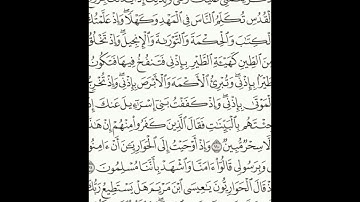 ٱلْقُدُسِ تُكَلِّمُ ٱلنَّاسَ فِى ٱلْمَهْدِ وَكَهْلًا ۖ وَإِذْ عَلَّمْتُكَ
ٱلْكِتَٰبَ وَٱلْحِكْمَةَ وَٱلتَّوْرَىٰةَ وَٱلْإِنجِيلَ ۖ وَإِذْ تَخْلُقُ
مِنَ ٱلطِّينِ كَهَيْـَٔةِ ٱلطَّيْرِ بِإِذْنِى فَتَنفُخُ فِيهَا فَتَكُونُ
طَيْرًۢا بِإِذْنِى ۖ وَتُبْرِئُ ٱلْأَكْمَهَ وَٱلْأَبْرَصَ بِإِذْنِى ۖ
ٱلْمَوْتَىٰ بِإِذْنِى ۖ وَإِذْ كَفَفْتُ بَنِىٓ إِسْرَٰٓءِيلَ عَنكَ إِذْ
جِئْتَهُم بِٱلْبَيِّنَٰتِ فَقَالَ ٱلَّذِينَ كَفَرُوا۟ مِنْهُمْ إِنْ هَٰذَآ
إِلَّا سِحْرٌ مُّبِينٌ ۝ وَإِذْ أَوْحَيْتُ إِلَى ٱلْحَوَارِيِّـۧنَ أَنْ ءَامِنُوا۟
بِى وَبِرَسُولِى قَالُوٓا۟ ءَامَنَّا وَٱشْهَدْ بِأَنَّنَا مُسْلِمُونَ
إِذْ قَالَ ٱلْحَوَارِيُّونَ يَٰعِيسَى ٱبْنَ مَرْيَمَ هَلْ يَسْتَطِيعُ رَبُّكَ